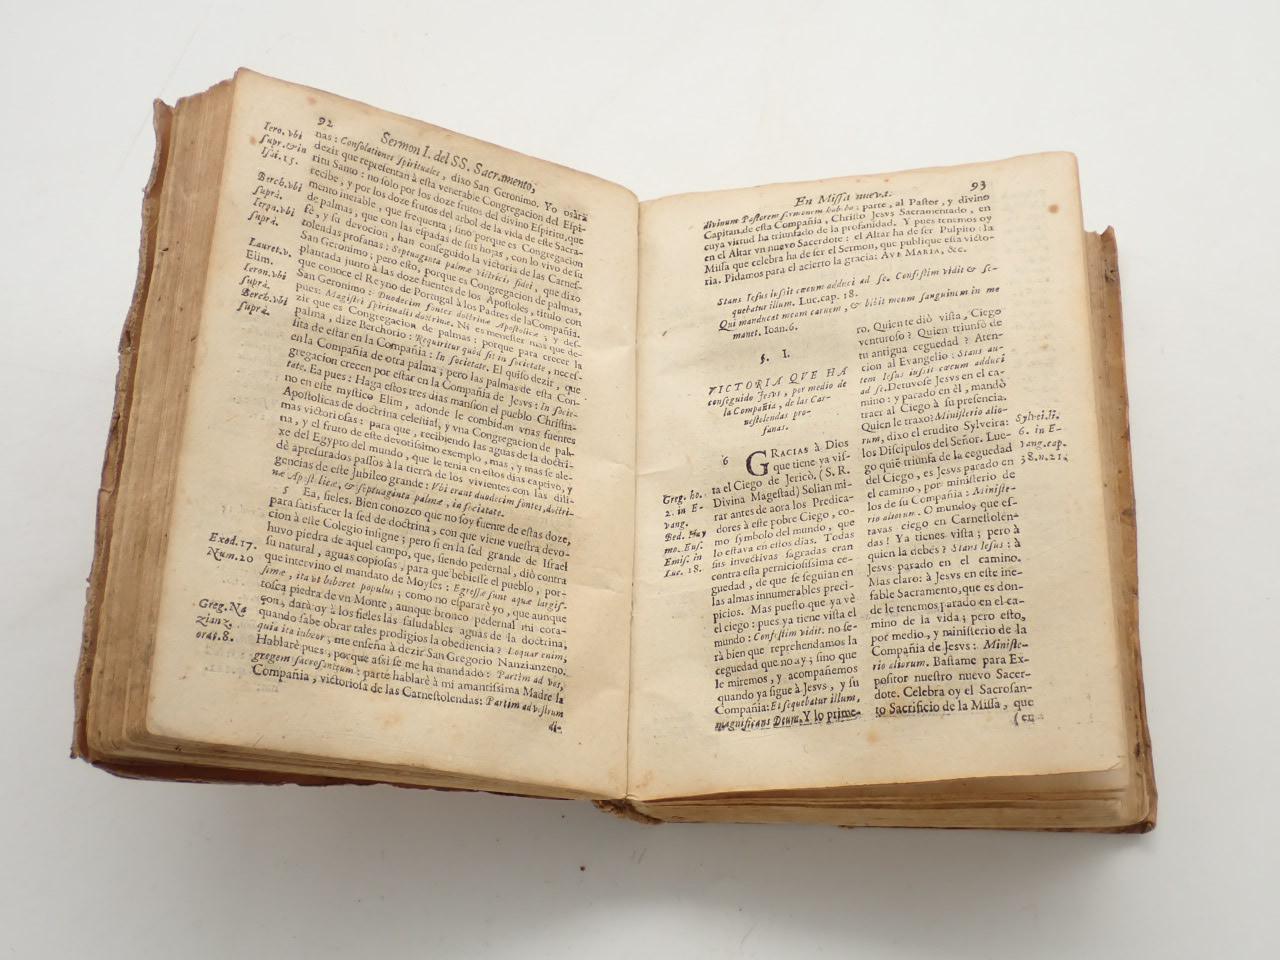 92
Sermon I. del SS. Sacramento,
nas: Consolationes spirituales, dixo San Geronimo. Yo osàra
dezir que representan à esta venerable Congregacion del Espi-
ritu Santo: no solo por los doze frutos del divino Espiritu, que
recibe, y por los doze frutos del arbol de la vida de este Sacra-
mento inefable, que frequenta; sino porque es Congregacion
de palmas, que con las espadas de sus hojas, con lo vivo de su
fè, y su devocion, han conseguido la victoria de las Carnes-
tolendas profanas: Septuaginta palmæ victricis fidei, que dixo
San Geronimo; pero esto, porque es Congregacion de palmas,
plantada junto à las doze fuentes de los Apostoles, titulo con
que conoce el Reyno de Portugal à los Padres de la Compañia,
San Geronimo: Duodecim fontes doctrinæ Apostolicæ; y des-
pues: Magistri spiritualis doctrinæ. Ni es menester mas que de-
zir que es Congregacion de palmas; porque para crecer la
palma, dize Berchorio: Requiritur quòd sit in societate, neces-
sita de estar en la Compañia: In societate. El quiso dezir, que
en la Compañia de otra palma; pero las palmas de esta Con-
gregacion crecen por estar en la Compañia de Jesus: In socie-
tate. Ea pues: Haga estos tres dias mansion el pueblo Christia-
no en este mystico Elim, adonde le combidan vnas fuentes
Apostolicas de doctrina celestial, y vna Congregacion de pal-
mas victoriosas: para que, recibiendo las aguas de la doctri-
na, y el fruto de este devotissimo exemplo, mas, y mas se ale-
xe del Egypto del mundo, que le tenia en estos dias captivo, y
dè apresurados passos à la tierra de los vivientes con las dili-
gencias de este Jubileo grande: Vbi erant duodecim fontes, doctri-
næ Apostolicæ, & septuaginta palmæ, in societate.
5 Ea, fieles. Bien conozco que no soy fuente de estas doze,
para satisfacer la sed de doctrina, con que viene vuestra devo-
cion à este Colegio insigne; pero si en la sed grande de Israel
huvo piedra de aquel campo, que, siendo pedernal, diò contra
su natural, aguas copiosas, para que bebiesse el pueblo, por-
que intervino el mandato de Moyses: Egressæ sunt aquæ largis-
simæ, ita vt biberet populus; como no esperarè yo, que aunque
tosca piedra de vn Monte, aunque bronco pedernal mi cora-
çon, darà oy à los fieles las saludables aguas de la doctrina,
quando sabe obrar tales prodigios la obediencia? Loquar enim,
quia ita iubeor; me enseña à dezir San Gregorio Nanzianzeno.
Hablarè pues, porque assi se me ha mandado: Partim ad vos,
gregem sacrosanctum: parte hablarè à mi amantissima Madre la
Compañia, victoriosa de las Carnestolendas: Partim ad vestrum
di-
Iero. vbi
supr. & in
Isai. 15.
Berch. vbi
suprà.
Ierga. vbi
suprà.
Lauret. v.
Elim.
Ieron. vbi
suprà.
Berch. vbi
suprà.
Exod. 17.
Num. 20
Greg. Na
zianz.
orat. 8.
En Missa nueva.
93
divinum Pastorem sermonem habebo: parte, al Pastor, y divino
Capitan de esta Compañia, Christo Jesvs Sacramentado, en
cuya virtud ha triunfado de la profanidad. Y pues tenemos oy
en el Altar vn nuevo Sacerdote: el Altar ha de ser Pulpito: la
Missa que celebra ha de ser el Sermon, que publique esta victo-
ria. Pidamos para el acierto la gracia: AVE MARIA, &c.
Stans Iesus iussit cæcum adduci ad se. Confestim vidit & se-
quebatur illum. Luc. cap. 18.
Qui manducat meam carnem, & bibit meum sanguinem in me
manet. Ioan. 6.
§. I.
VICTORIA QUE HA
conseguido Jesvs, por medio de
la Compañia, de las Car-
nestolendas pro-
fanas.
6 GRACIAS à Dios
que tiene ya vis-
ta el Ciego de Jericò, (S. R.
Divina Magestad) Solian mi-
rar antes de aora los Predica-
dores à este pobre Ciego, co-
mo symbolo del mundo, que
lo estava en estos dias. Todas
sus invectivas sagradas eran
contra esta perniciosissima ce-
guedad, de que se seguian en
las almas innumerables preci-
picios. Mas puesto que ya vè
el ciego: pues ya tiene vista el
mundo: Confestim vidit. no se-
rà bien que reprehendamos la
ceguedad que no ay; sino que
le miremos, y acompañemos
quando ya sigue à Jesvs, y su
Compañia: Et sequebatur illum,
magnificans Deum. Y lo prime-
Greg. ho.
2. in E-
vang.
Bed. Hay
mo. Eus.
Emis. in
Luc. 18.
ro. Quien te diò vista, Ciego
venturoso? Quien triunfò de
tu antigua ceguedad? Aten-
cion al Evangelio: Stans au-
tem Iesus iussit cæcum adduci
ad se. Detuvose Jesvs en el ca-
mino: y parado en èl, mandò
traer al Ciego à su presencia.
Quien le traxo? Ministerio alio-
rum, dixo el erudito Sylveira:
los Discipulos del Señor. Lue-
go quiẽ triunfa de la ceguedad
del Ciego, es Jesvs parado en
el camino, por ministerio de
los de su Compañia: Ministe-
rio aliorum. O mundo, que es-
tavas ciego en Carnestolen-
das! Ya tienes vista; pero à
quien la debes? Stans Iesus: à
Jesvs parado en el camino.
Mas claro: à Jesvs en este ine-
fable Sacramento, que es don-
de le tenemos parado en el ca-
mino de la vida; pero esto,
por medio, y ministerio de la
Compañia de Jesvs: Ministe-
rio aliorum. Bastame para Ex-
positor nuestro nuevo Sacer-
dote. Celebra oy el Sacrosan-
to Sacrificio de la Missa, que
(en
Sylvei. li.
6. in E-
vang. cap.
38. n. 21.